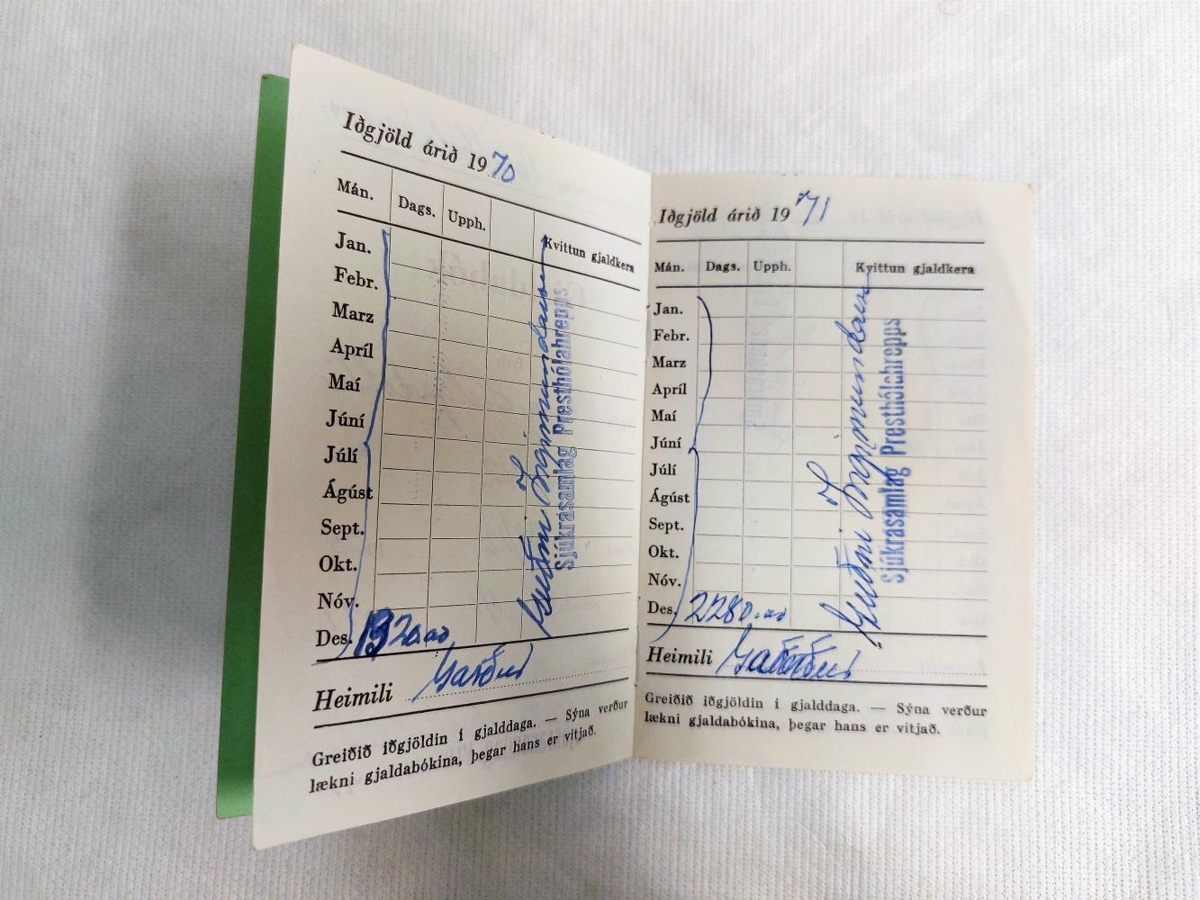 Iðgjöld árið 1970
Mán. Dags. Upph. Kvittun gjaldkera
Jan.
Febr.
Marz
Apríl
Maí
Júní
Júlí
Ágúst
Sept.
Okt.
Nóv.
Des. 1320.00
Guðni Ingimundarson
Sjúkrasamlag Presthólahrepps
Heimili Garður
Greiðið iðgjöldin í gjalddaga. — Sýna verður
lækni gjaldabókina, þegar hans er vitjað.
Iðgjöld árið 1971
Mán. Dags. Upph. Kvittun gjaldkera
Jan.
Febr.
Marz
Apríl
Maí
Júní
Júlí
Ágúst
Sept.
Okt.
Nóv.
Des. 2280.00
Guðni Ingimundarson
Sjúkrasamlag Presthólahrepps
Heimili
Greiðið iðgjöldin í gjalddaga. — Sýna verður
lækni gjaldabókina, þegar hans er vitjað.